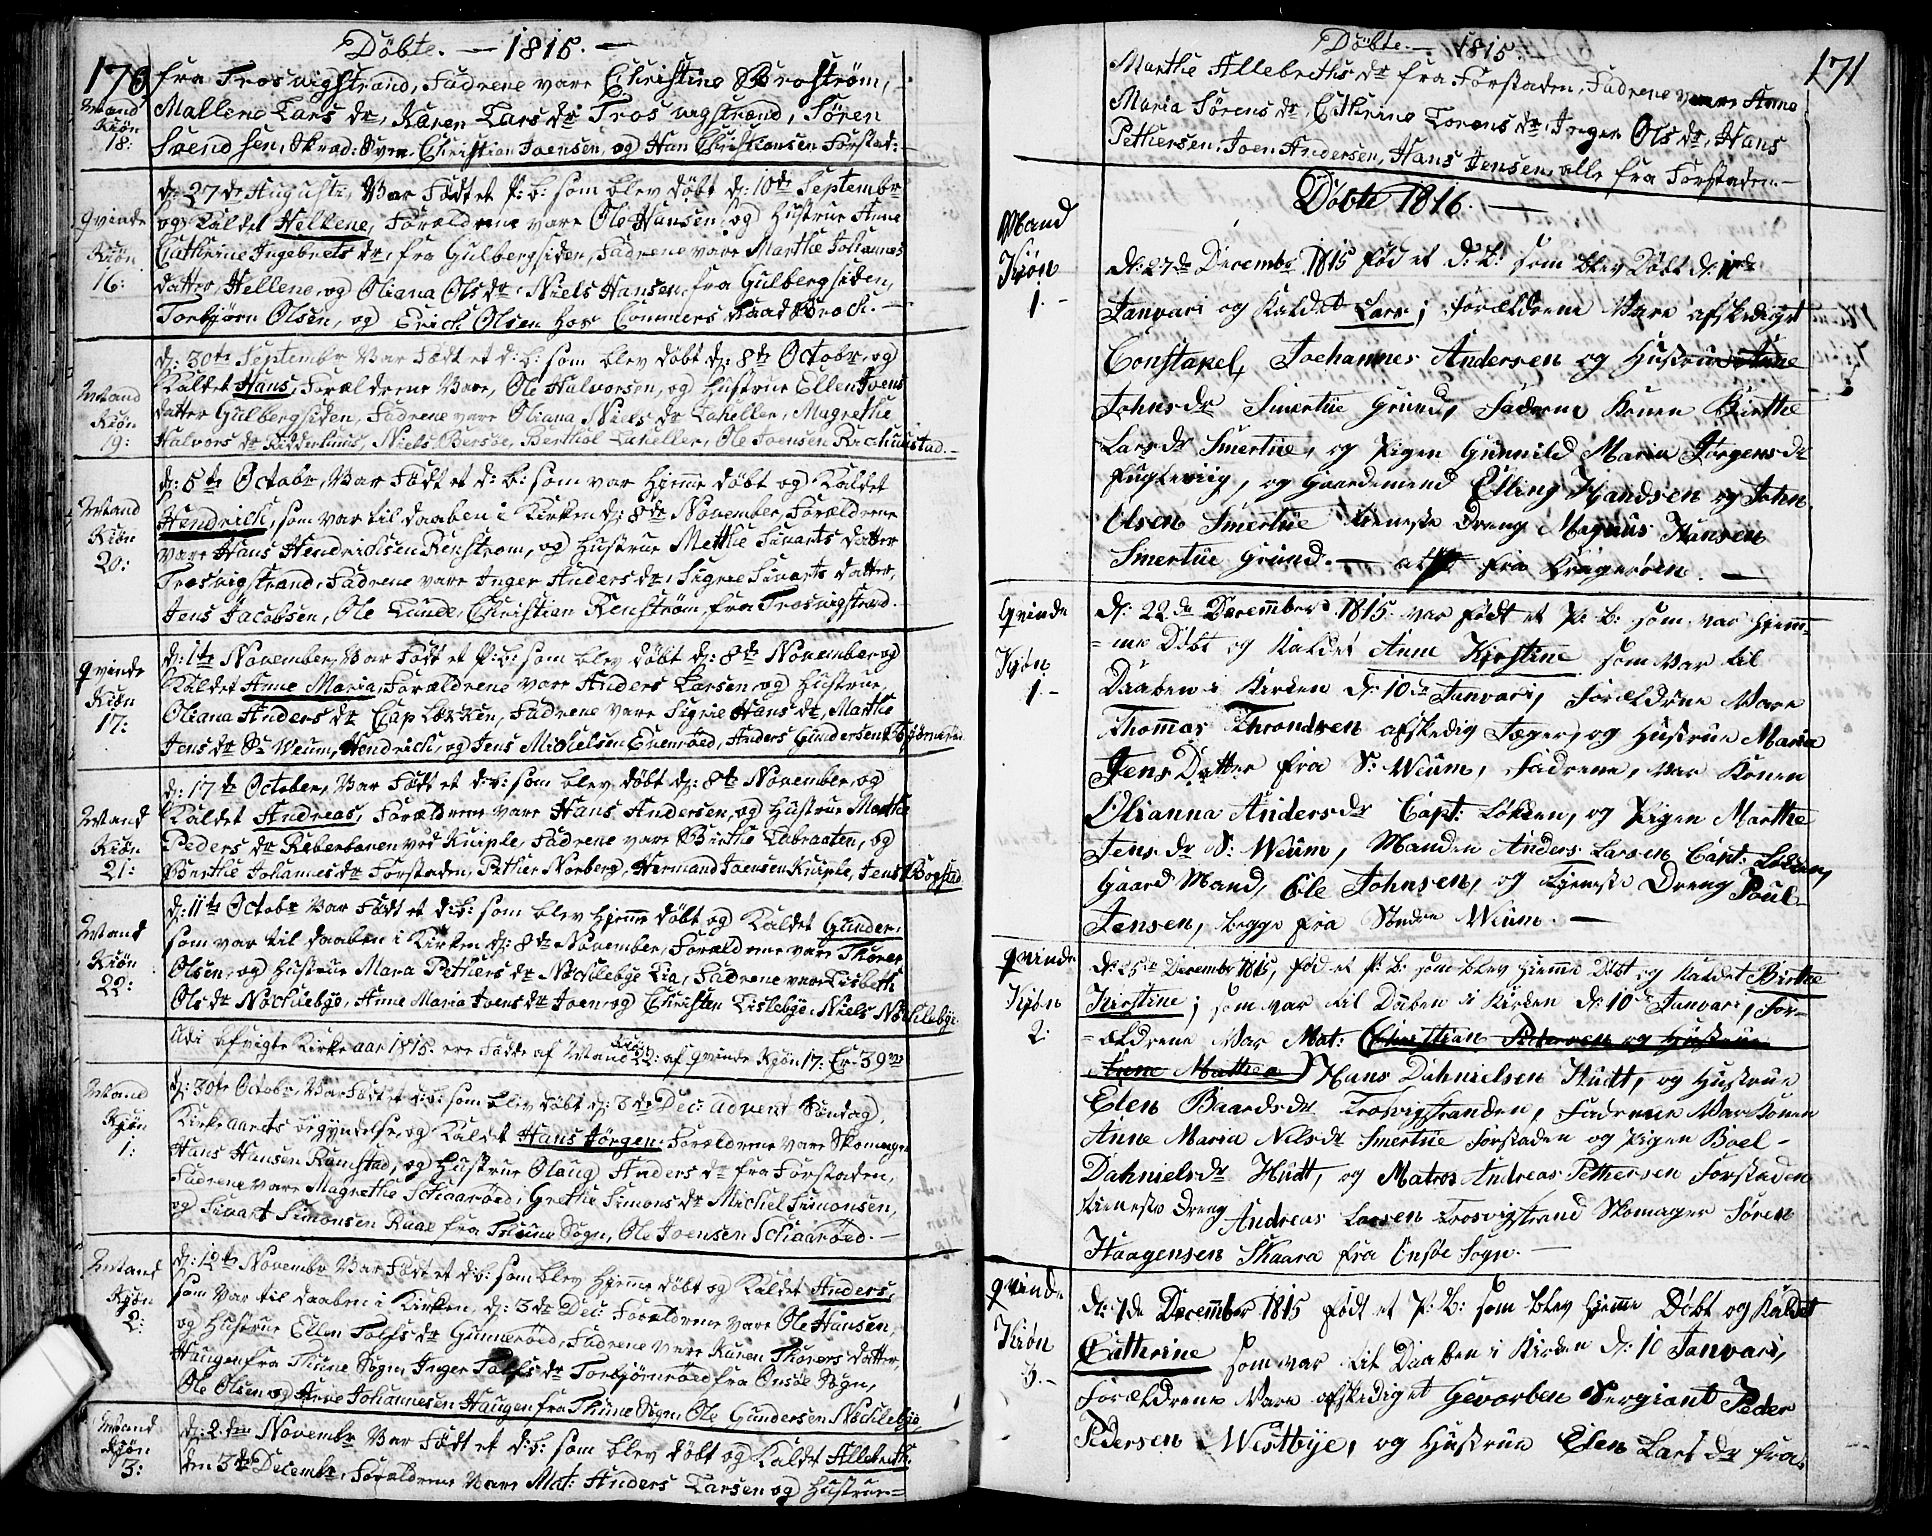 Döbte. — 1815. —
170
fra Trosvigstrand, Fadrene vare Christine Broström,
Mand Kiøn 18:
Malline Lars dr, Karen Lars dr Trosvigstrand, Sören
Svendsen, Christian Joensen, og Han Christiansen Forstad:
qvinde Kiøn 16:
d: 27de Augusti, Var Födt et P: b: som blev döbt d: 10de Septembr
og Kaldet Hellene, Forældrene vare Ole Hansen og Hustrue Anne
Cathrine Ingebrets dr, fra Gulbergsiden, Fadrene vare Marthe Johannes
datter, Hellene, og Oliana Ols dr, Niels Hansen, fra Gulbergsiden,
Torbjörn Olsen, og Erich Olsen hos Commers Raad
Mand Kiøn 19:
d: 30te Septembr Var Födt et d: b: som blev döbt d: 8de Octobr, og
Kaldet Hans, Forældrene Vare, Ole Halvorsen, og Hustrue Ellen Joens
datter Gulbergsiden, Fadrene vare Oliana Niels dr Labeller, Magrethe
Halvors dr Ridderhuus, Niels Bersöe, Berthol Labeller, Ole Joensen
Mand Kiøn 20:
d: 5te Octobr, Var Födt et d: b: som var hjemme döbt og Kaldet
Hendrich, som var til daaben i Kirken d: 8de November, Forældrene
vare Hans Hendrichsen Renström, og Hustrue Metthe Sivarts datter
Trosvigstrand, Fadrene vare Inger Anders dr, Sigrie Sivarts datter,
Jens Jacobsen, Ole Lunde, Christian Renström, fra Trosvigstrand.
qvinde Kiøn 17:
d: 1te November, Var Födt et P: b: som blev döbt d: 8de November og
Kaldet Anne Maria, Forældrene vare Anders Larsen, og Hustrue,
Oliana Anders dr Cap Løkken, Fadrene vare Sigrie Hans dr, Marthe
Jens dr S: Weum, Hendrich, og Jens Michelsen Evenröed, Anders Gundersen
Mand Kiøn 21:
d: 17de October, Var Födt et d: b: som blev döbt d: 8de November, og
Kaldet Andreas, Forældrene vare Hans Andersen, og Hustrue Marthe
Peders dr Reberbanen ved Kniple, Fadrene vare Birthe Labraaten, og
Berthe Johannes dr Forstaden, Pether Norberg, Hermand Joensen Kniple, Jens Bogstad
Mand Kiøn 22:
d: 11te Octobr Var Födt et d: b: som blev hjemme döbt og Kaldet Gunder,
som var til daaben i Kirken d: 8de November, Forældrene vare Thorer
Olsen, og Hustrue Mara Pethers dr Nöchlebye Lia, Fadrene vare Lisbeth
Ols dr Nöchlebye, Anne Maria Joens dr Joen og Christen Lislebye, Niels Nöchlebye
Udi afvigte Kirke aar 1815: ere Födte af Mand Kiøn 22: af qvinde Kjøn 17: Er 39
Mand Kjøn 1:
d: 30te Octobr, Var Födt et d: b: som blev döbt d: 3de Dec: advent Söndag
Kirke aarets begyndelse, og Kaldet Hans Jörgen, Forældrene vare Skomager
Hans Hansen Ramstad, og Hustrue Olaug Anders dr fra Forstaden,
Fadrene vare Magrethe Schaaröed, Grethe Simons dr Michel Simonsen,
og Sivart Simonsen Ruae fra Thune Sogn, Ole Joensen Schaaröed. —
Mand Kjøn 2:
d: 12te Novembr Var Födt et d: b: som blev hjemme döbt og Kaldet Anders,
som var til daaben i Kirken, d: 3de Dec: Forældrene vare Ole Hansen,
og Hustrue Ellen Tolfs dr Gunneröed, Fadrene vare Karen Thorers datter,
Haugen fra Thune Sogn, Inger Tolfs dr Torbjörnröed fra Onsöe Sogn,
Ole Olsen og Arne Johannesen Haugen fra Thune Sogn, Ole Gundersen Nöchlebye
Mand Kjøn 3:
d: 2den Novembr Var Födt et d: b: som blev döbt og Kaldet Allebrith
den 3de Decembr, Forældrene Vare Mat: Anders Larsen og Hustrue=
Döbte. — 1815. —
171
Marthe Allebreths dr fra Forstaden, Fadrene vare Anne
Maria Sörens dr, Cathrine Torens dr, Inger Ols dr, Hans
Pethersen, Joen Andersen, Hans Jensen, alle fra Forstaden. —
Döbte 1816. —
Mand Kjøn 1. —
D: 27de Decembr 1815 föd et d: b: som blev Döbt d:
Januari og Kaldet Lars; Forældrene Vare afskediget
Constapel, Joehannes Andersen og Hustrue Anne
Johns dr Smertue Grund, Fadrene Konen Birthe
Lars dr Smertue, og Pigen Gunnild Maria Jörgens dr
Fuglevig, og Gaardmend Elling Handsen og John
Olsen Smertue tieneste Dreng Magnus Hansen
Smertue Grund. — fra Kragerøen. —
qvinde Kjøn 1 —
D: 22de December 1815 var født et P: b: som var Hjem-
=me Döbt og Kaldet Anne Kjrstine som var til
Daaben i Kirken D: 10de Januari, Forældrene Vare
Thommas Throndsen afskedig Jæger, og Hustrue Maria
Jens Datter fra S: Weum, Fadrene, var Konen
Olianna Anders dr Capt: Løkken, og Pigen Marthe
Jens dr S: Weum, Manden Anders Larsen Capt: Løkken,
Gaard Mand, Ole Johnsen, og tjeneste Dreng Poul
Jensen, begge fra Söndre Weum. —
qvinde Kjøn 2.
D: 25de December 1815, föd et P: b: som blev hjemme Döbt og Kaldet Birthe
Kirstine; som var til Daaben i Kirken D: 10de Januari, For-
=ældrene Var Mat: (Christian Petersen og Hustrue
Anne Mathea) Hans Dahnielsen Hudt, og Hustrue
Elen Baards dr Trosvigstranden, Fadrene Var Konen
Anne Maria Nils dr Smertue Forstaden og Pigen Boel -
Dahniels dr Hudt, og Matros Andreas Pethersen Forstaden
tieneste Dreng Andreas Larsen Trosvigstrand Skomager Sören
Haagensen Skaara fra Onsöe Sogn. —
qvinde Kjøn 3. —
D: 7de December 1815 födt et P: b: som blev hjeme Döbt og Kaldet
Catherine som var til Daaben i Kirken d: 10 Januari,
Forældrene Vare afskediget Gevorben Sergiant Peder
Pedersen Westbye, og Hustrue Elen Lars dr fra